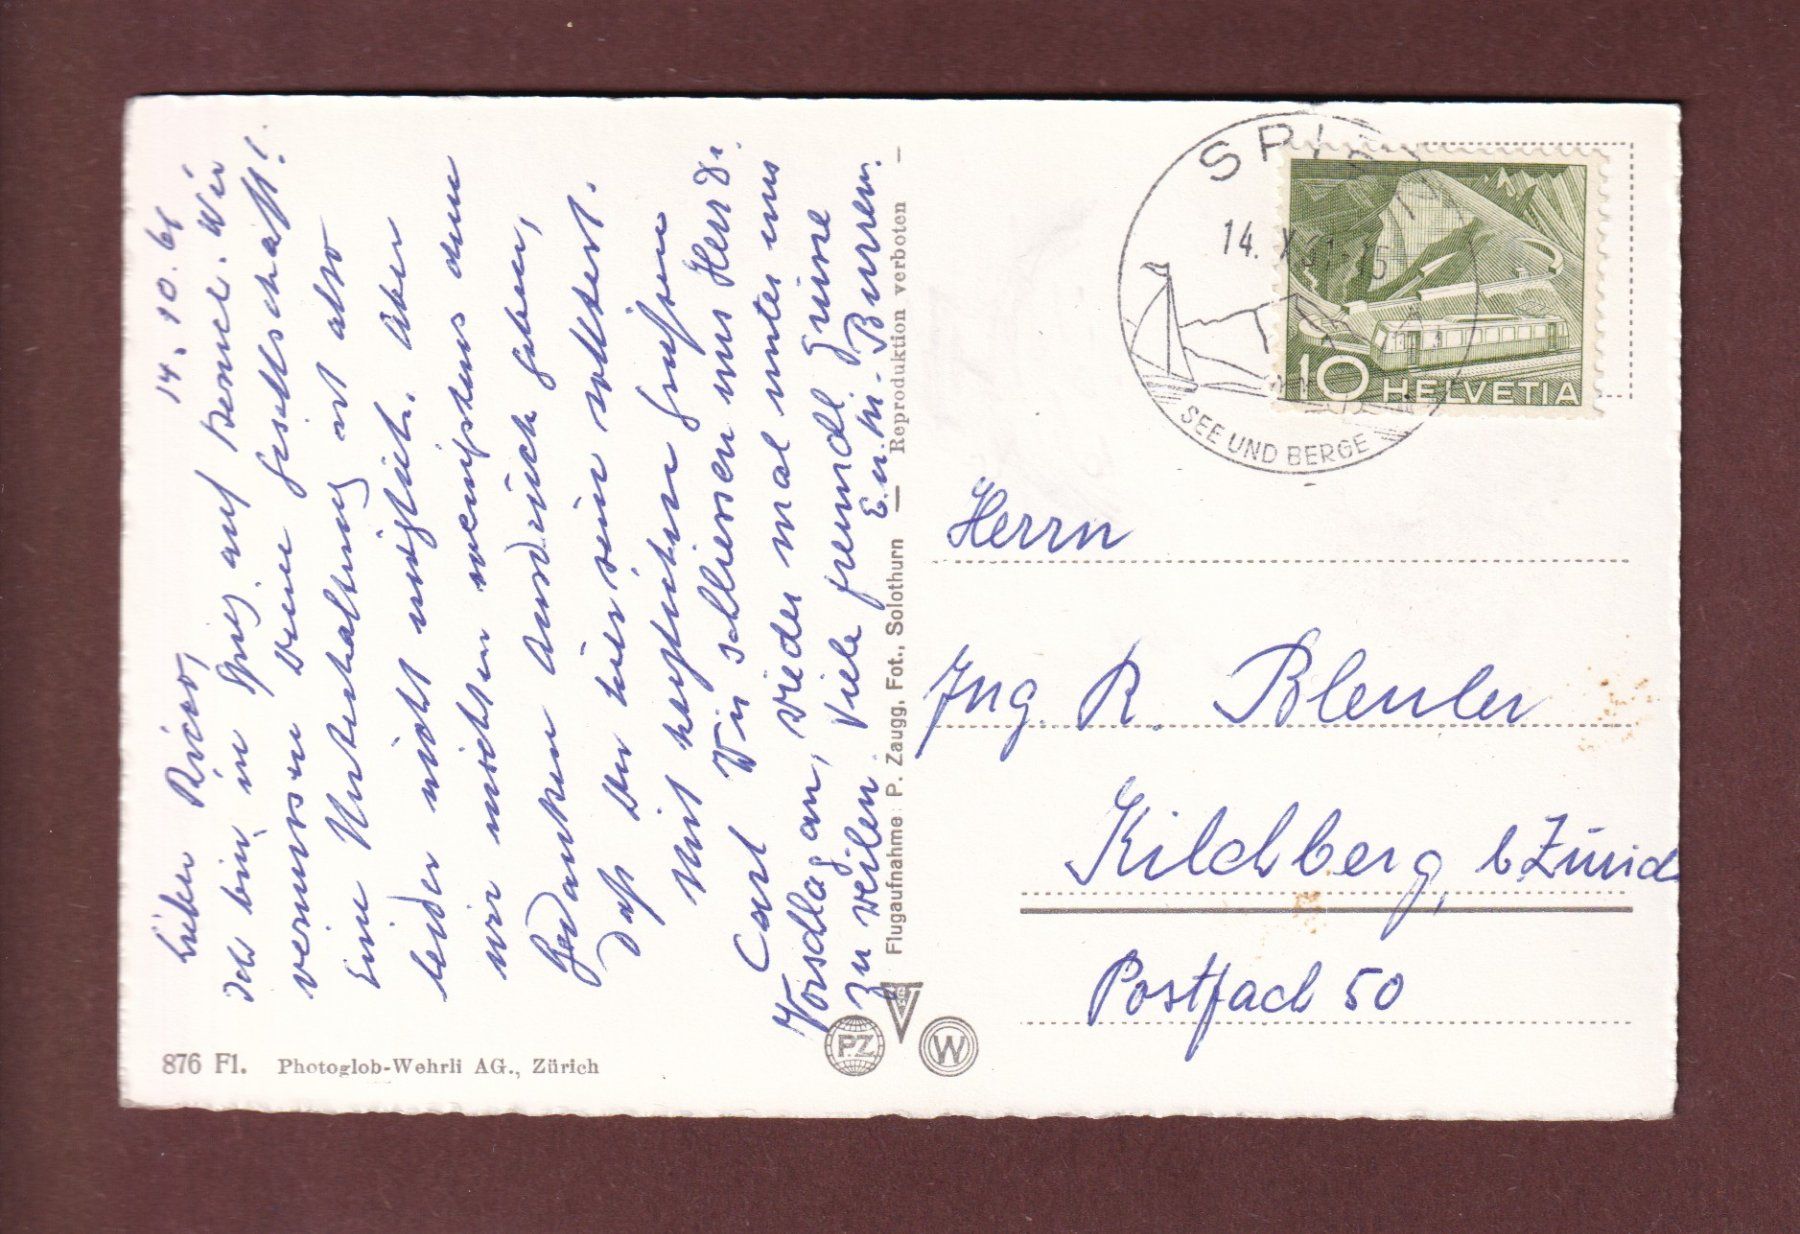 14.10.61
Lieber Rico,
Ich bin in Spiez auf Besuch. Wir
vermissen Deine Gesellschaft!
Eine Unterhaltung ist also
leider nicht möglich. Aber
wir möchten wenigstens dem
Gedanken Ausdruck geben,
daß Du hier sein solltest.
Mit herzlichen Grüssen
Carl Wir schliessen uns Herr Dr.
Vorschlag an, wieder mal unter uns
zu weilen. Viele freundl Grüsse
E. u. M. Burren.
876 Fl. Photoglob-Wehrli AG., Zürich
Flugaufnahme: P. Zaugg, Fot., Solothurn — Reproduktion verboten —
PZ
W
SPIEZ
14. X. 61-15
SEE UND BERGE
10 HELVETIA
Herrn
Ing. R. Bleuler
Kilchberg, b Zürich
Postfach 50